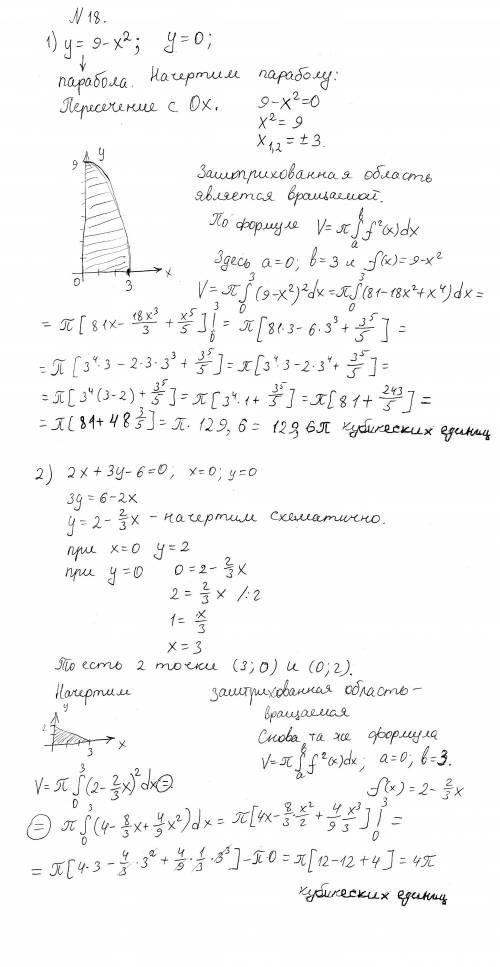 N 18.
1) y = 9-x²; y=0;
парабола. Начертим параболу:
Пересечение с Ox. 9-x²=0
x²=9
x₁,₂=±3.
9 y
0 3 x
Заштрихованная область
является вращаемой.
По формуле V=π∫ₐᵇf²(x)dx
Здесь a=0; b=3 и f(x)=9-x²
V=π∫₀³(9-x²)²dx=π∫₀³(81-18x²+x⁴)dx=
=π[81x-18x³/3+x⁵/5]|₀³=π[81·3-6·3³+3⁵/5]=
=π[3⁴·3-2·3·3³+3⁵/5]=π[3⁴·3-2·3⁴+3⁵/5]=
=π[3⁴(3-2)+3⁵/5]=π[3⁴·1+3⁵/5]=π[81+243/5]=
=π[81+48 3/5]=π·129,6=129,6π кубических единиц
2) 2x+3y-6=0; x=0; y=0
3y=6-2x
y=2-2/3x - начертим схематично.
при x=0 y=2
при y=0 0=2-2/3x
2=2/3x /:2
1=x/3
x=3
То есть 2 точки (3;0) и (0;2).
Начертим заштрихованная область-
вращаемая
y
2
3 x
Снова та же формула
V=π∫ₐᵇf²(x)dx; a=0; b=3.
f(x)=2-2/3x
V=π∫₀³(2-2/3x)²dx=
=π∫₀³(4-8/3x+4/9x²)dx=π[4x-8/3·x²/2+4/9·x³/3]|₀³=
=π[4·3-4/3·3²+4/9·1/3·3³]-π·0=π[12-12+4]=4π
кубических единиц